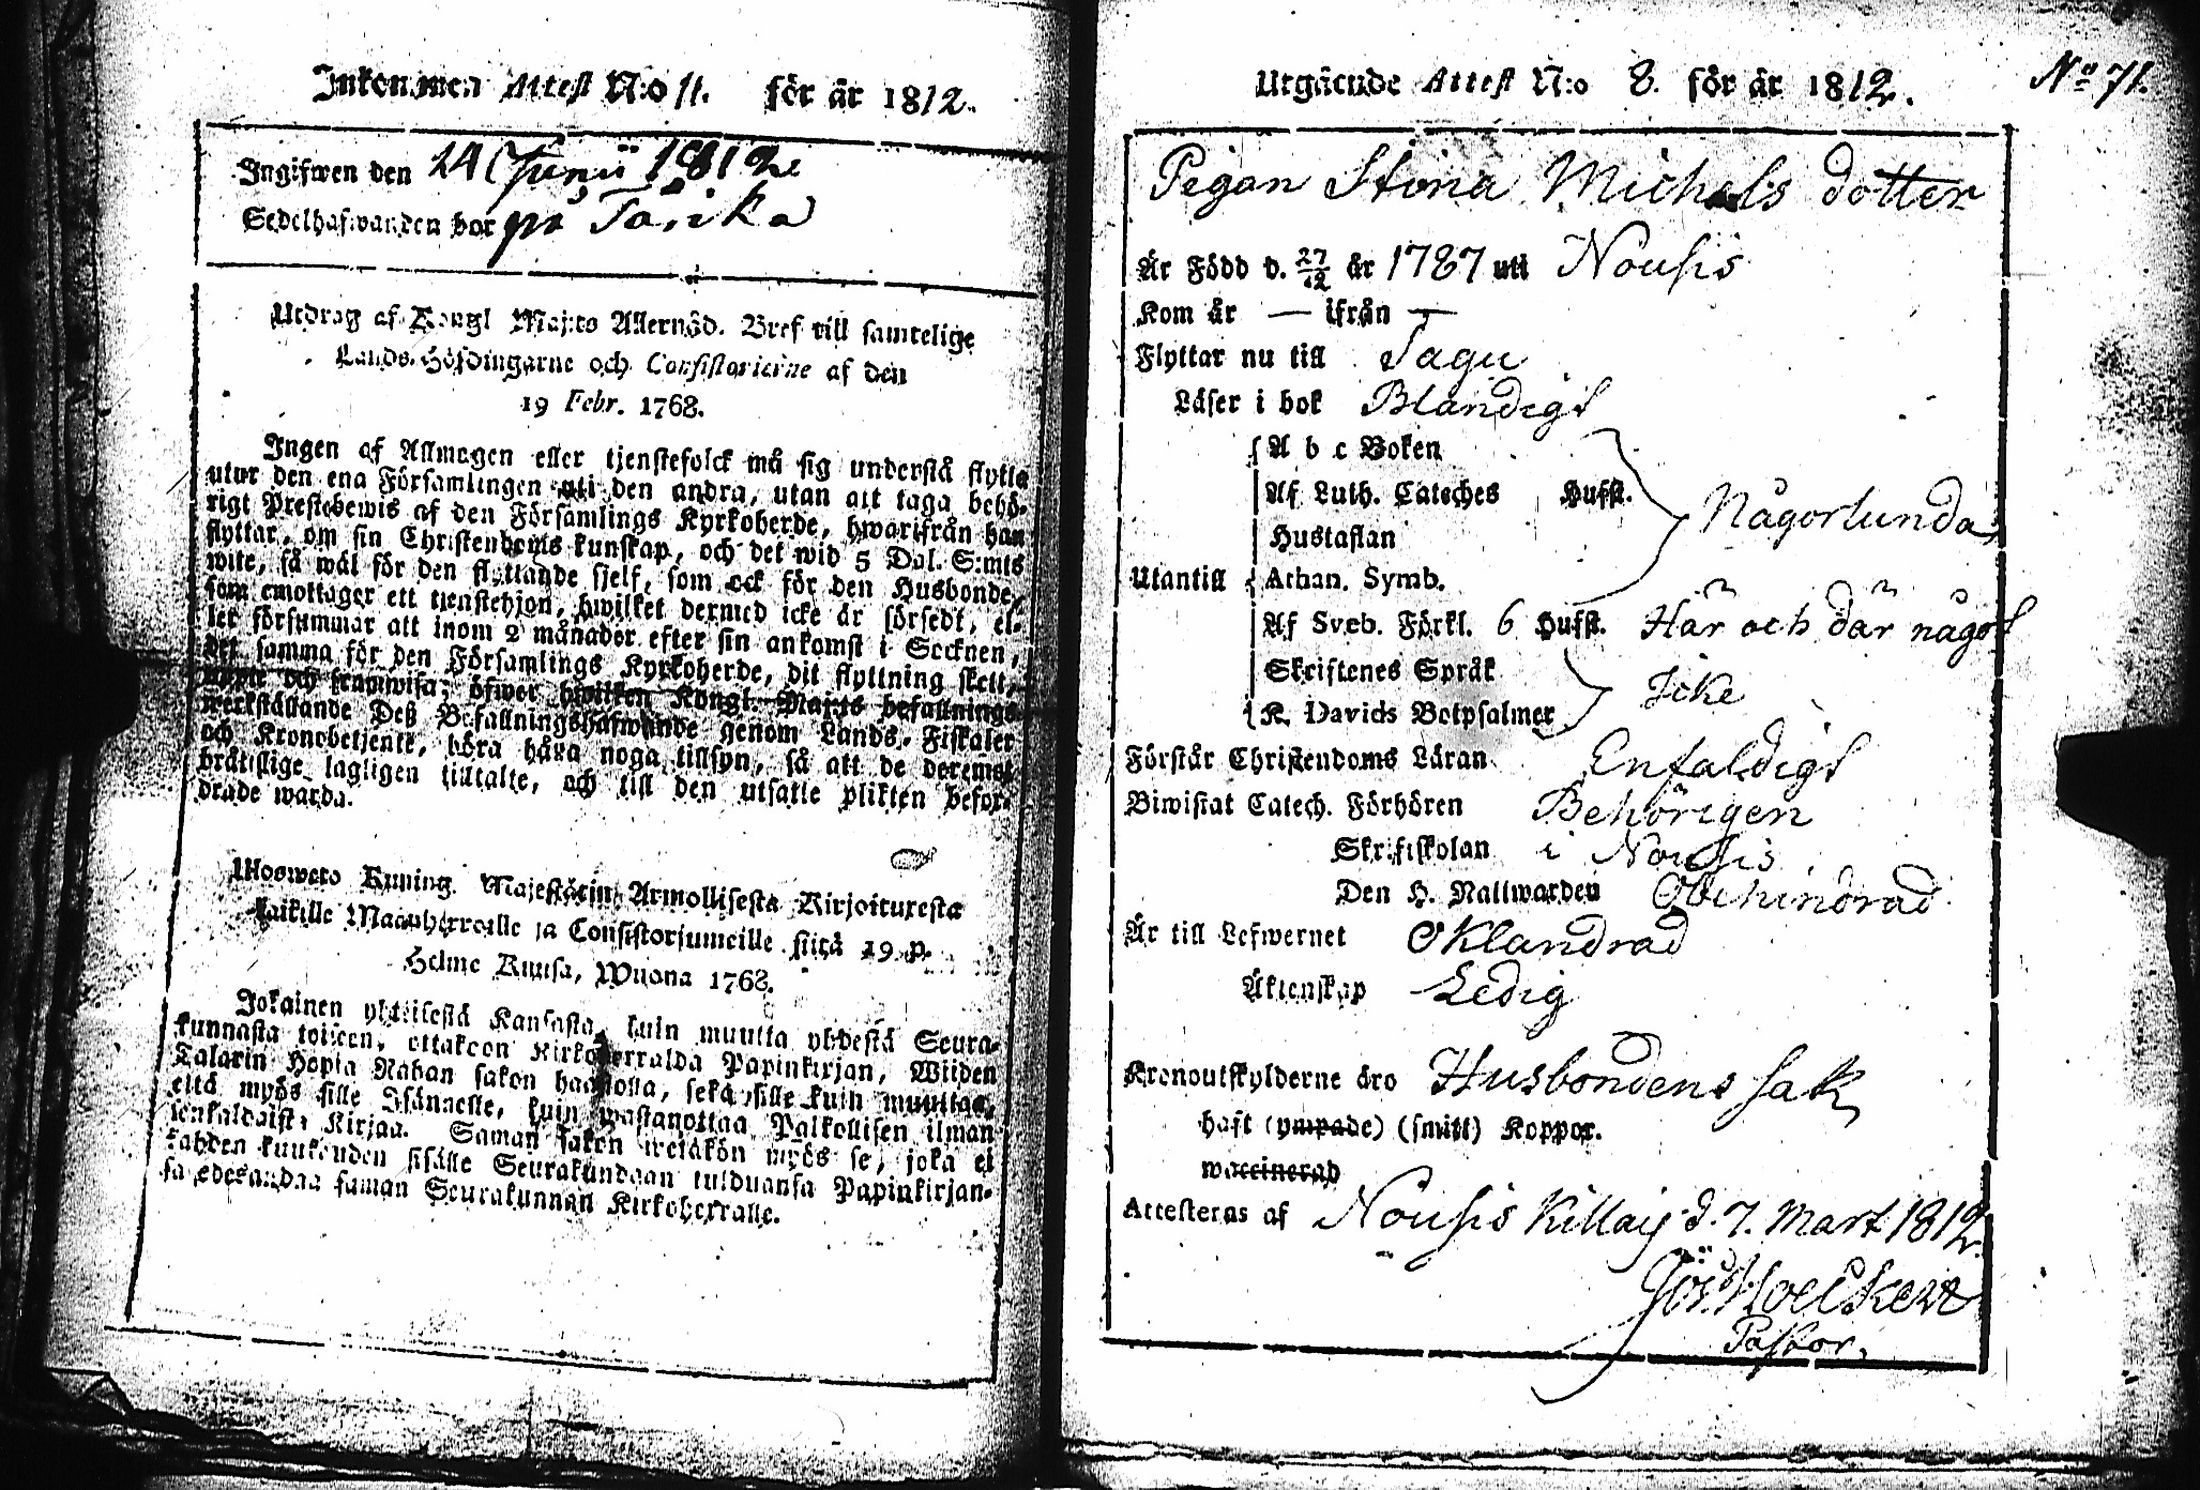 Inkommen Attest N:o 11. för år 1812.
Ingifwen den 24 Junii 1812
Sedelhafwanden bor på
Utdrag af Kongl Maj:ts Allernåd. Bref till samtelige
Lands-Höfdingarne och Consistorierne af den
19 Febr. 1768.
Ingen af Allmogen eller tjenstefolck må sig understå flytta
utur den ena Församlingen uti den andra, utan att taga behö-
rigt Prestebewis af den Församlings Kyrkoherde, hwarifrån han
flyttar, om sin Christendoms kunskap, och det wid 5 Dal. S:mts
wite, så wäl för den flyttande sjelf, som ock för den Husbonde,
som emottager ett tjenstehjon, hwilket dermed icke är försedt, el-
ler försummar att inom 2 månader efter sin ankomst i Socknen,
det samma för den Församlings Kyrkoherde, dit flyttning skett,
uppte och framwisa; öfwer hwilken Kongl. Maj:ts befallnings
werkställande Deß Befallningshafwande genom Lands-Fiskaler
och Kronobetjente, böra hafwa noga tillsyn, så att de deremot
bråttslige lagligen tilltalte, och till den utsatte plikten befor-
drade warda.
Ulosweto Kuning. Majestätin Armollisesta Kirjoituxesta
kaikille Maanherroille ja Consistoriumeille siitä 19. p.
Helme Kuusa, Wuona 1768.
Jokainen yhteisestä Kansasta, kuin muutta yhdestä Seura-
kunnasta toiseen, ottakoon Kirkoherralda Papinkirjan, Wiiden
Talarin Hopia Rahan sakon haastolla, sekä sille kuin muuttaa,
että myös sille Isännelle, kuin wastanottaa Palkollisen ilman
senkaldaista Kirjaa. Saman sakon wetäkön myös se, joka ei
kahden kuukauden sisälle Seurakundaan tulduansa Papinkirjan-
sa edesandaa saman Seurakunnan Kirkoherralle.
Utgående Attest N:o 8. för år 1812.
No 71.
Pigan Stina Michels dotter
Är Född d. 27/12 år 1787 uti Nousis
Kom år — ifrån —
Flyttar nu till Sagu
Läser i bok Blandigt
A b c Boken
Af Luth. Cateches Hufst.
Någorlunda
Hustaflan
Utantill Athan. Symb.
Af Sveb. Förkl. 6 Hufst. Här och där något
Skriftenes Språk
Icke
K. Davids Botpsalmer
Förstår Christendoms Läran Enfaldigt
Biwistat Catech. Förhören Behörigen
Skriftskolan i Nousis
Den H. Nattwarden Obehindrad
Är till Lefwernet Oklandrad
Äktenskap Ledig
Kronoutskylderne äro Husbondens sak
haft (ympade) (smitt) Koppor.
waccinerad
Attesteras af Nousis Killais d. 7. Mart 1812
Jos. Hoelkert
Pastor.